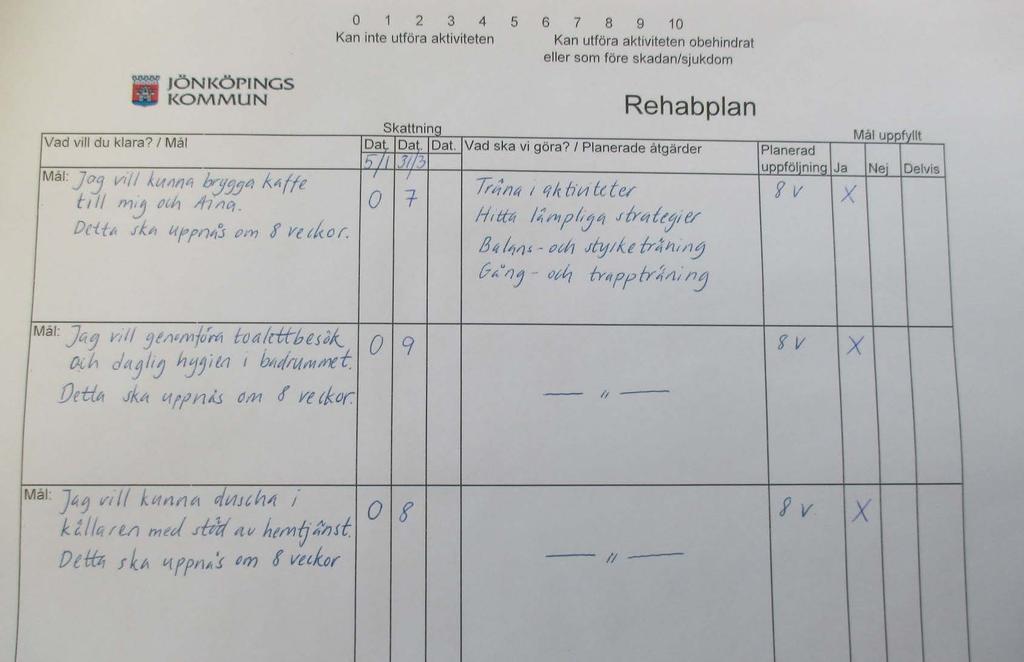 0 1 2 3 4 5 6 7 8 9 10
Kan inte utföra aktiviteten Kan utföra aktiviteten obehindrat
eller som före skadan/sjukdom
JÖNKÖPINGS
KOMMUN
Rehabplan
Skattning Mål uppfyllt
Vad vill du klara? / Mål Dat. Dat. Dat. Vad ska vi göra? / Planerade åtgärder Planerad
uppföljning Ja Nej Delvis
5/1 31/3
Mål: Jag vill kunna brygga kaffe 0 7 Träna i aktiviteter 8 v X
till mig och Aina. Hitta lämpliga strategier
Detta ska uppnås om 8 veckor. Balans- och styrketräning
Gång- och trappträning
Mål: Jag vill genomföra toalettbesök 0 9 8 v X
och daglig hygien i badrummet.
Detta ska uppnås om 8 veckor. — " —
Mål: Jag vill kunna duscha i 0 8 8 v. X
källaren med stöd av hemtjänst.
Detta ska uppnås om 8 veckor — " —